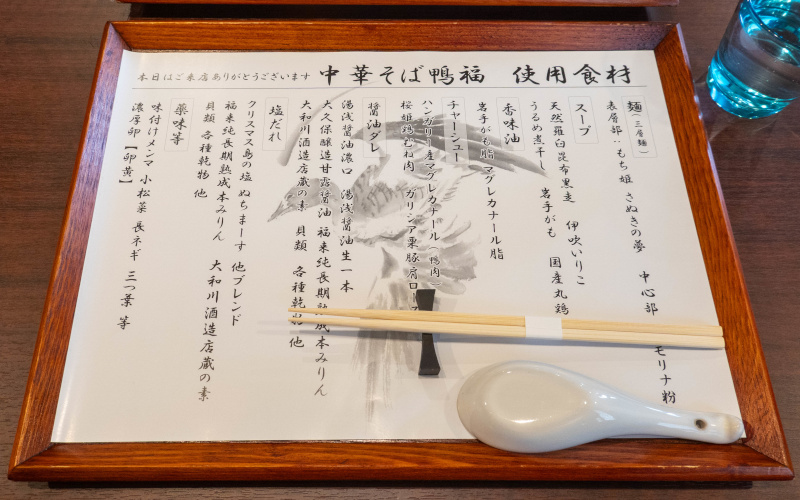 本日はご来店ありがとうございます 中華そば鴨福 使用食材
麺(三層麺)
表層部:もち姫 さぬきの夢 中心部 モリナ粉
スープ
天然羅臼昆布黒走 伊吹いりこ
うるめ煮干し 岩手がも 国産丸鶏
香味油
岩手がも脂 マグレカナール脂
チャーシュー
ハンガリー産マグレカナール(鴨肉)
桜姫鶏むね肉 ガリシア栗豚肩ロース
醤油ダレ
湯浅醤油濃口 湯浅醤油生一本
大久保醸造甘露醤油 福来純長期熟成本みりん
大和川酒造店蔵の素 貝類 各種乾物 他
塩だれ
クリスマス島の塩 ぬちまーす 他ブレンド
福来純長期熟成本みりん 大和川酒造店蔵の素
貝類 各種乾物 他
薬味等
味付けメンマ 小松菜 長ネギ 三つ葉 等
濃厚卵【卵黄】